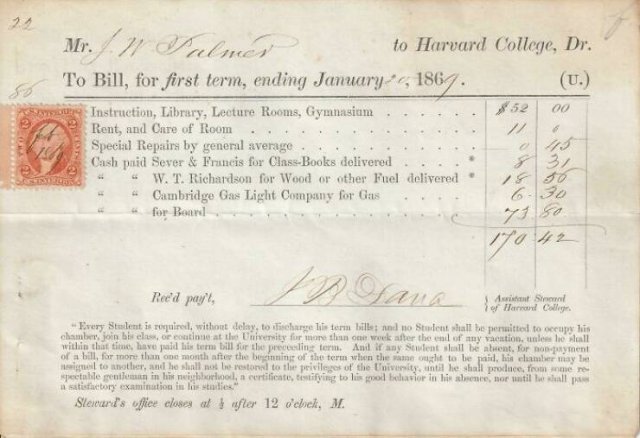 22
Mr. J. W. Palmer to Harvard College, Dr.
To Bill, for first term, ending January 20, 1869. (U.)
86
Instruction, Library, Lecture Rooms, Gymnasium $52 00
Rent, and Care of Room 11 0
Special Repairs by general average 0 45
Cash paid Sever & Francis for Class-Books delivered * 8 31
" " W. T. Richardson for Wood or other Fuel delivered * 18 56
" " Cambridge Gas Light Company for Gas 6 30
" " for Board 73 80
170.42
Rec'd pay't, J B Dana Assistant Steward
of Harvard College.
"Every Student is required, without delay, to discharge his term bills; and no Student shall be permitted to occupy his
chamber, join his class, or continue at the University for more than one week after the end of any vacation, unless he shall
within that time, have paid his term bill for the preceeding term. And if any Student shall be absent, for non-payment
of a bill, for more than one month after the beginning of the term when the same ought to be paid, his chamber may be
assigned to another, and he shall not be restored to the privileges of the University, until he shall produce, from some re-
spectable gentleman in his neighborhood, a certificate, testifying to his good behavior in his absence, nor until he shall pass
a satisfactory examination in his studies."
Steward's office closes at ½ after 12 o'clock, M.